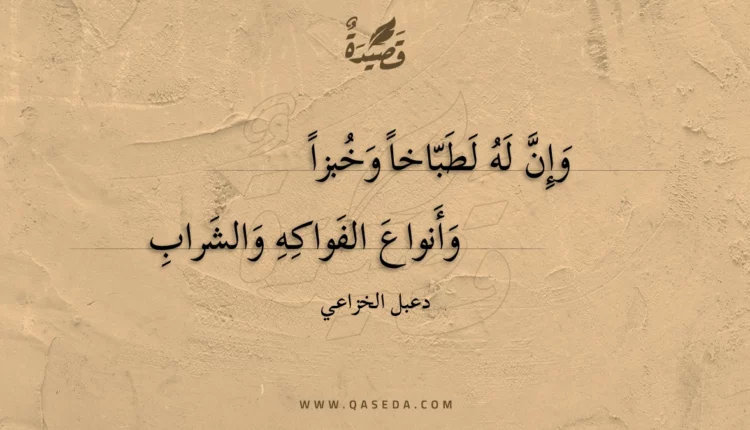 قَصِيدَةٌ
وَإِنَّ لَهُ لَطَبّاخاً وَخُبزاً
وَأَنواعَ الفَواكِهِ وَالشَرابِ
دعبل الخزاعي
WWW.QASEDA.COM